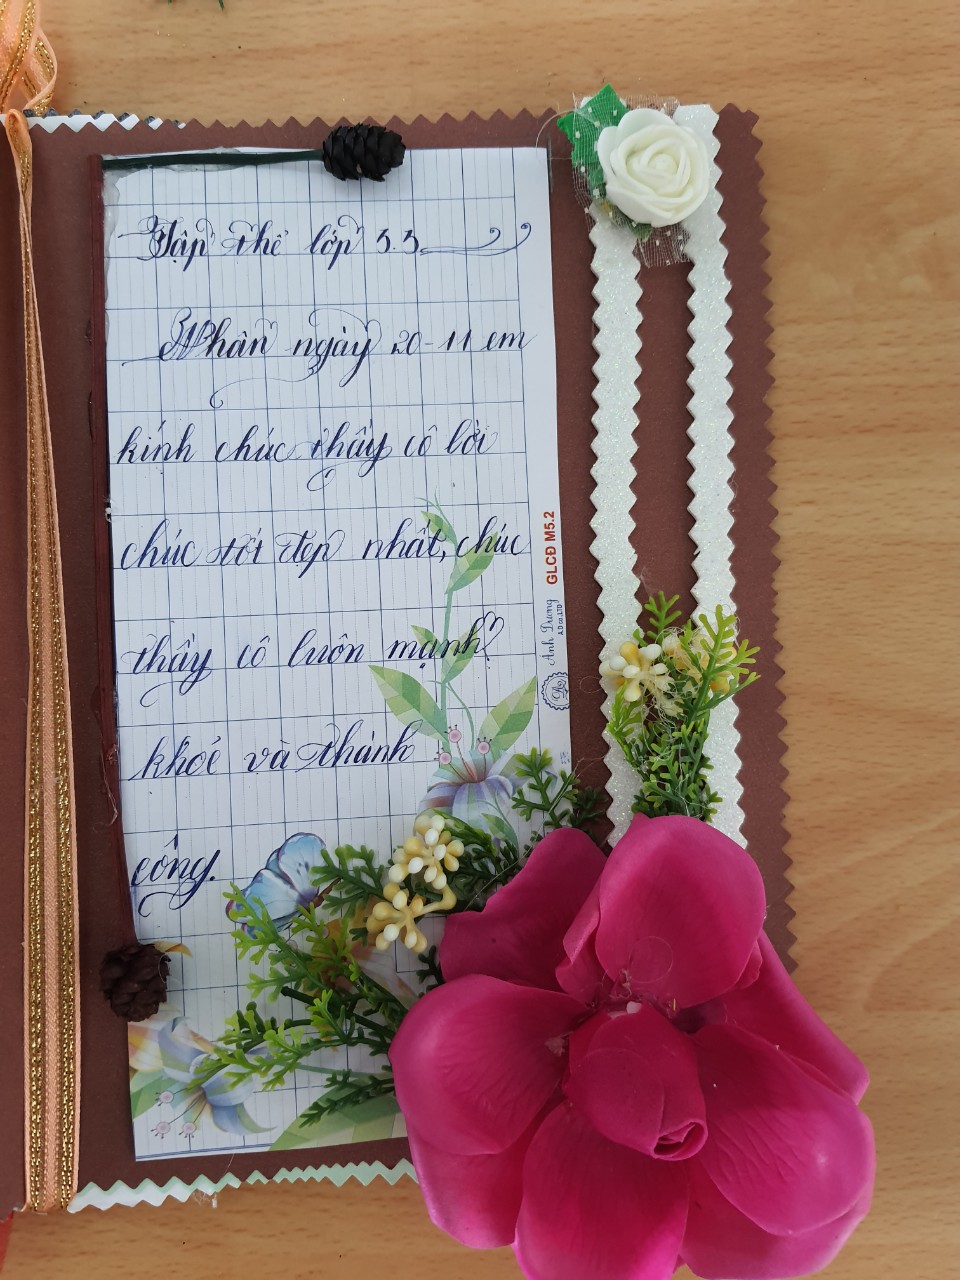 Tập thể lớp 3.3
Nhân ngày 20-11 em
kính chúc thầy cô lời
chúc tốt đẹp nhất, chúc
thầy cô luôn mạnh
khoẻ và thành
công.
GLCĐ M5.2
Anh Dương
A.D co.,LTD